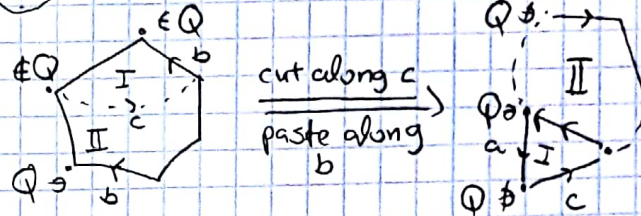 ∈Q
∉Q
I
b
c
II
Q∋
b
cut along c
paste along
b
Q∌
II
Q∋
a
I
Q∌
c